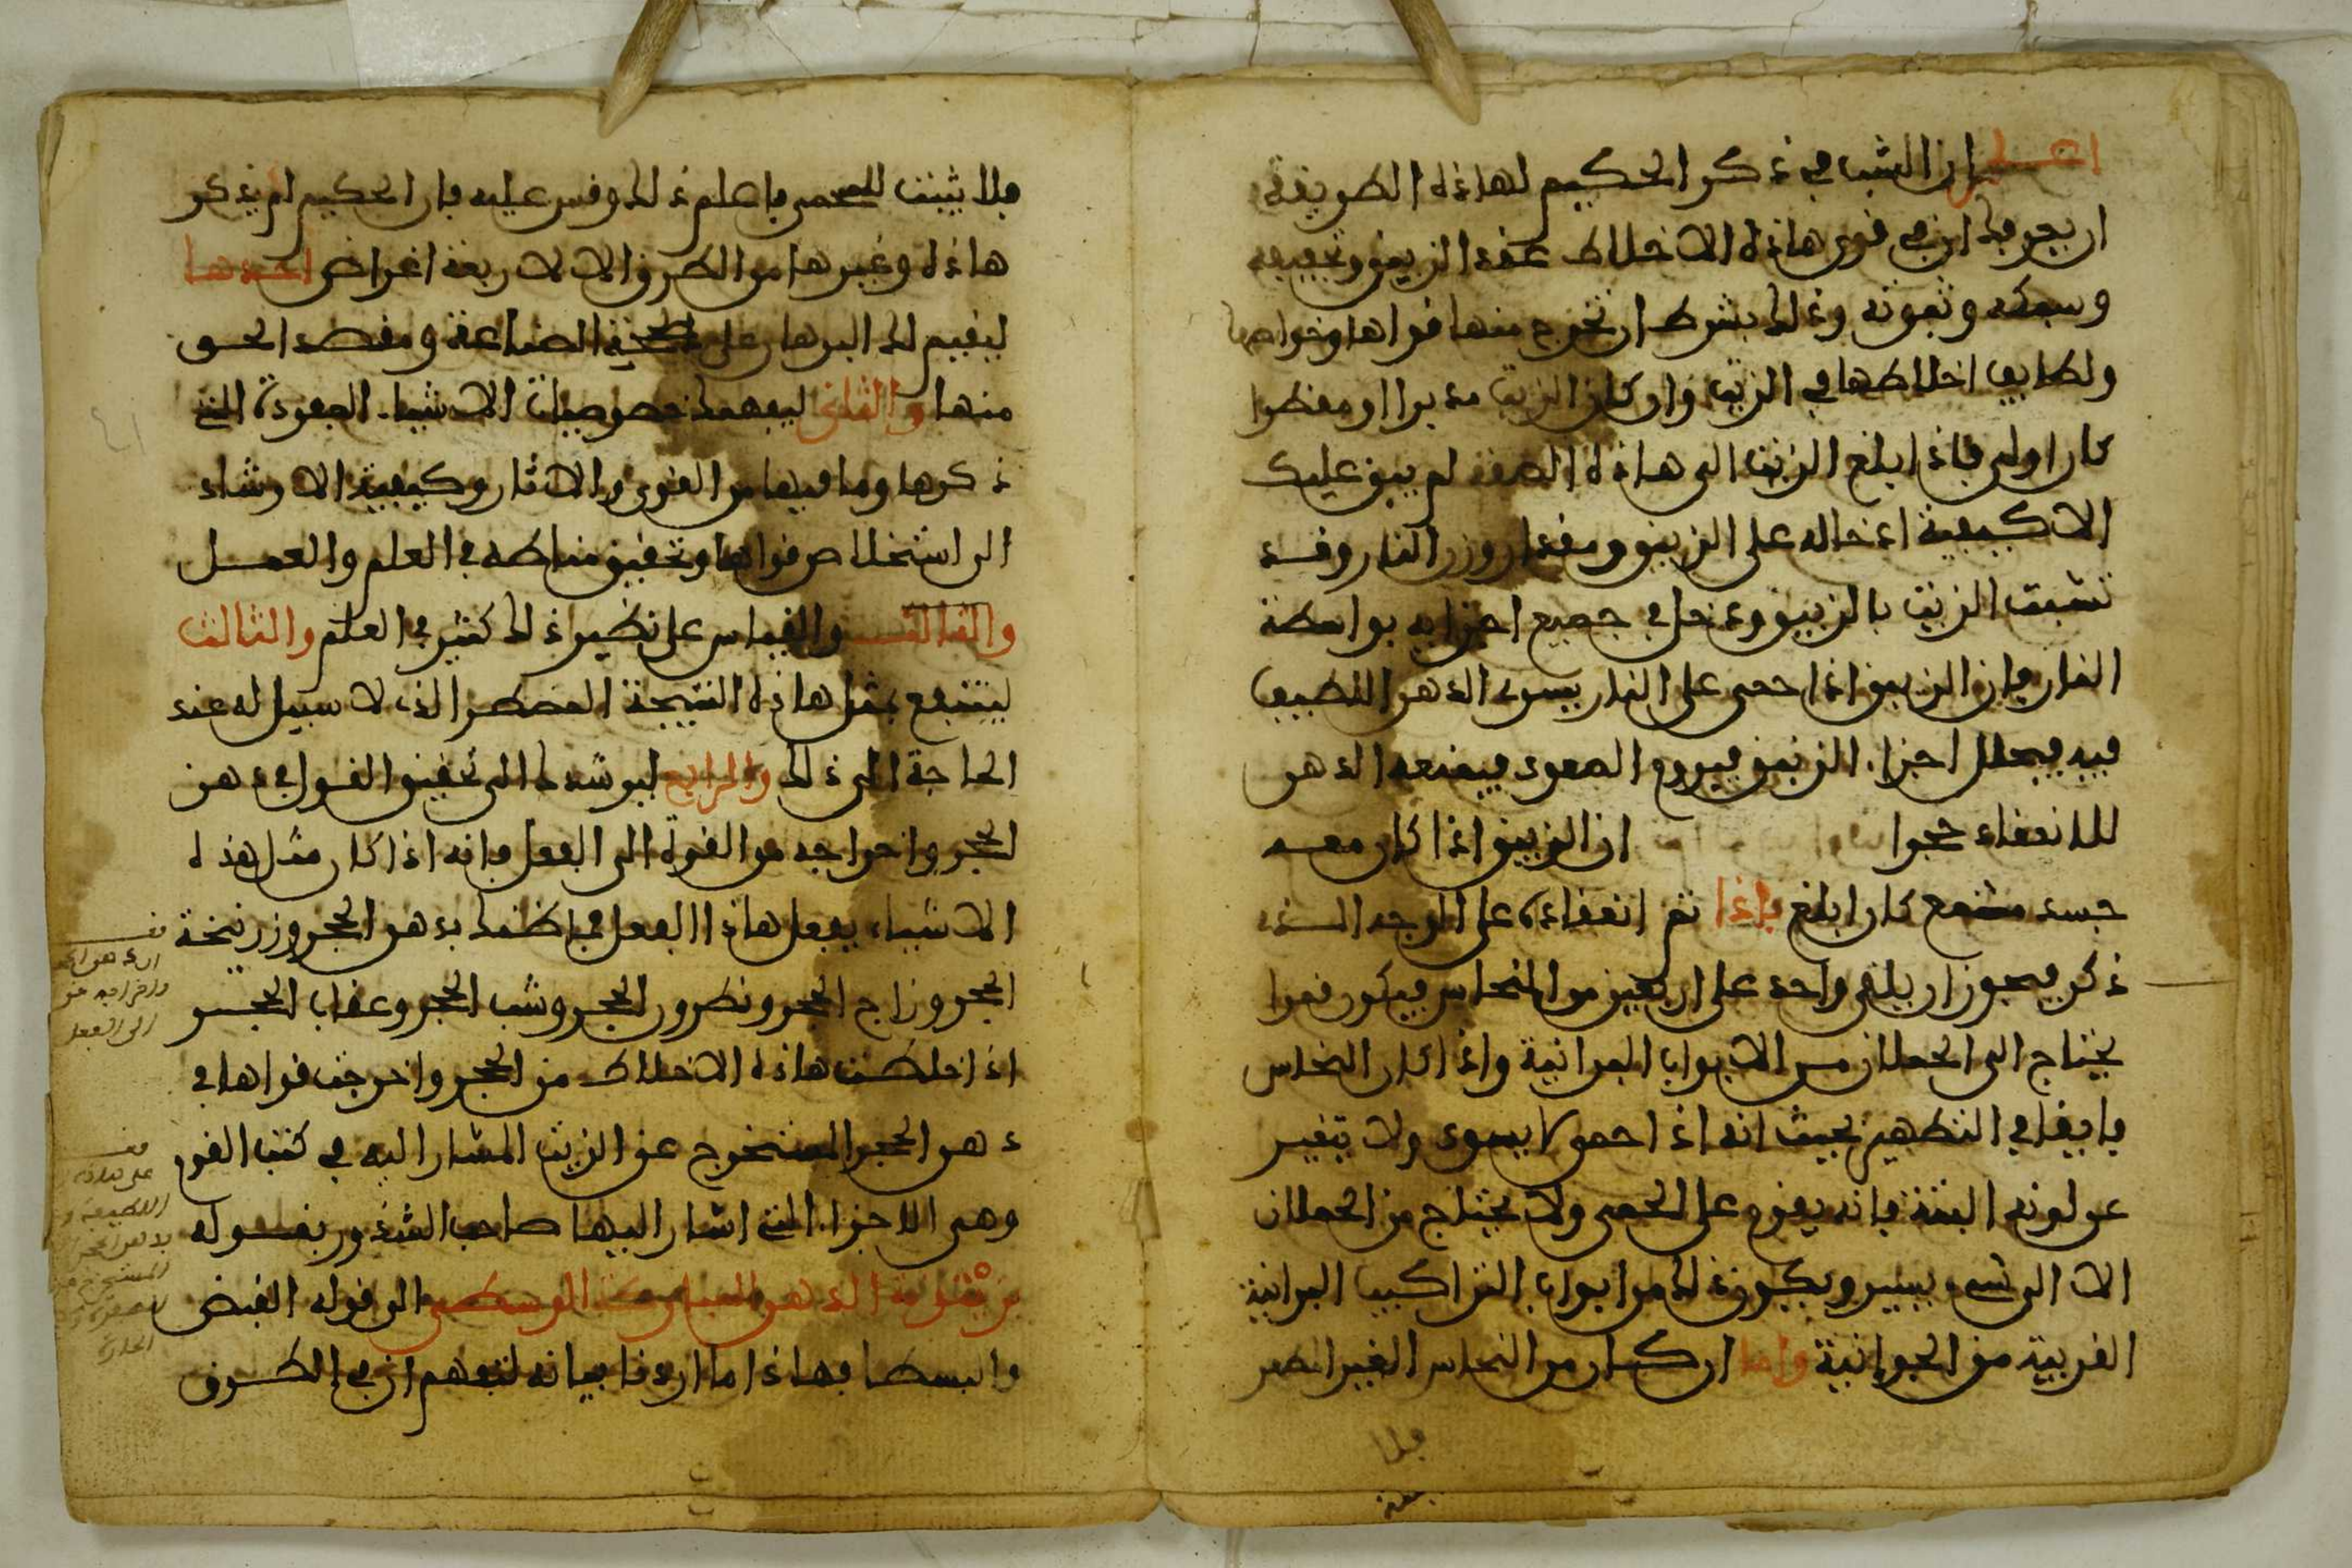 اعلم ان السبب في ذكر الحكيم لهاذه الطريقة
ان يعرفك ان في قوى هاذه الاخلاط عقد الزيبق وتجفيفه
وسبكه وثبوته وذلك بشرط ان تخرج منها قواها وخواصها
ولطايف اخلاطها في الزيت وان كان الزيت مدبرا او مقطرا
كان اولى فاذا بلغ الزيت الى هاذه الصفة لم يبق عليك
الا كيفية ادخاله على الزيبق ومقدار وزن النار وقد
تشبث الزيت بالزيبق ودخل في جميع اجزايه بواسطة
النار فان الزيبق اذا حمى على النار يسرى الدهن اللطيف
فيه فيحلل اجزاء الزيبق فيروم الصعود فيمنعه الدهن
للانعقاد حجرا ان الزيبق اذا كان معه
جسد مشمع كان ابلغ فاذا تم انعقاده على الوجه الذي
ذكر فيجوز ان يلقى واحد على اربعين من النحاس فيكون قمرا
يحتاج الى الحملان من الابواب البرانية واذا كان النحاس
فايقا في التطهير بحيث انه اذا حمى لا يسود ولا يتغير
عن لونه البتة فانه يقوم على الحمى ولا يحتاج من الحملان
الا الى شيء يسير ويكون ذلك من ابواب التراكيب البرانية
القريبة من الجوانية واما ان كان من النحاس الغير المطهر
فلا
فلا يثبت للحمى فاعلم ذلك وقس عليه فان الحكيم لم يذكر
هاذه وغيرها من الطرق الا لاربعة اغراض احدها
ليقيم لك البرهان على صحة الصناعة ومقصد الحق
منها والثاني ليفهمك خصوصيات الاشياء المفردة التي
ذكرها وما فيها من القوى والاثار وكيفية الارشاد
الى استخلاص قواها وتحقيق مناطه في العلم والعمل
والثالث والقياس على نظير ذلك كثير في العلم والثالث
لينتفع بمثل هاذه النتيجة المضطر الذي لا سبيل له عند
الحاجة الى ذلك والرابع ليرشدك الى تحقيق القول في دهن
الحجر واخراجه من القوة الى الفعل فانه اذا كان مثل هذه
الاشياء يفعل هاذا الفعل فما ظنك بدهن الحجر وزرنيخة
الحجر وزاج الحجر ونطرون الحجر وشب الحجر وعقاب الحجر
اذا خلطت هاذه الاخلاط من الحجر واخرجت قواها في
دهن الحجر المستخرج عن الزيت المشار اليه في كتب القوم
وهي الاجزاء التي اشار اليها صاحب الشذور بقوله
بزيتونة الدهن المباركة الوسطى الى قوله القبض
والبسطا فهاذا ما اردنا بيانه لتفهم ان في الطرق
ان دهن الحجر
واخراجه من
الى الفعل
على هاذه